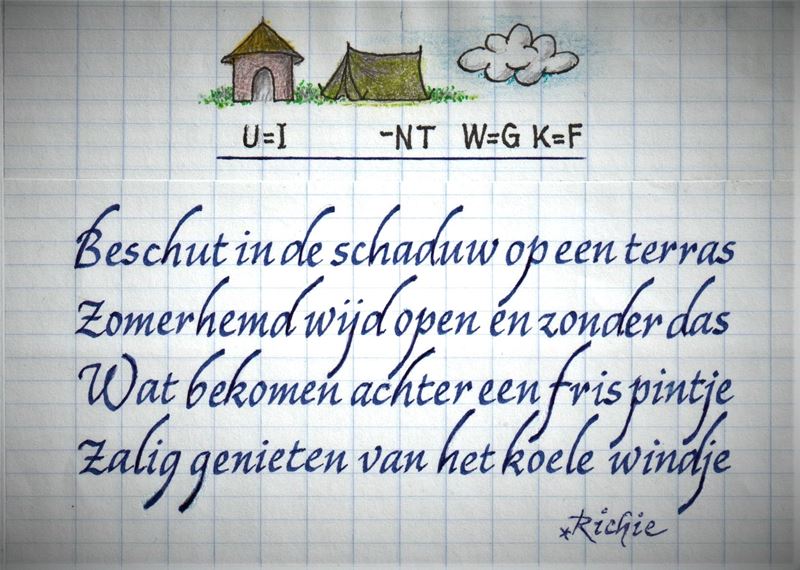 U=I -NT W=G K=F
Beschut in de schaduw op een terras
Zomerhemd wijd open en zonder das
Wat bekomen achter een fris pintje
Zalig genieten van het koele windje
*Richie